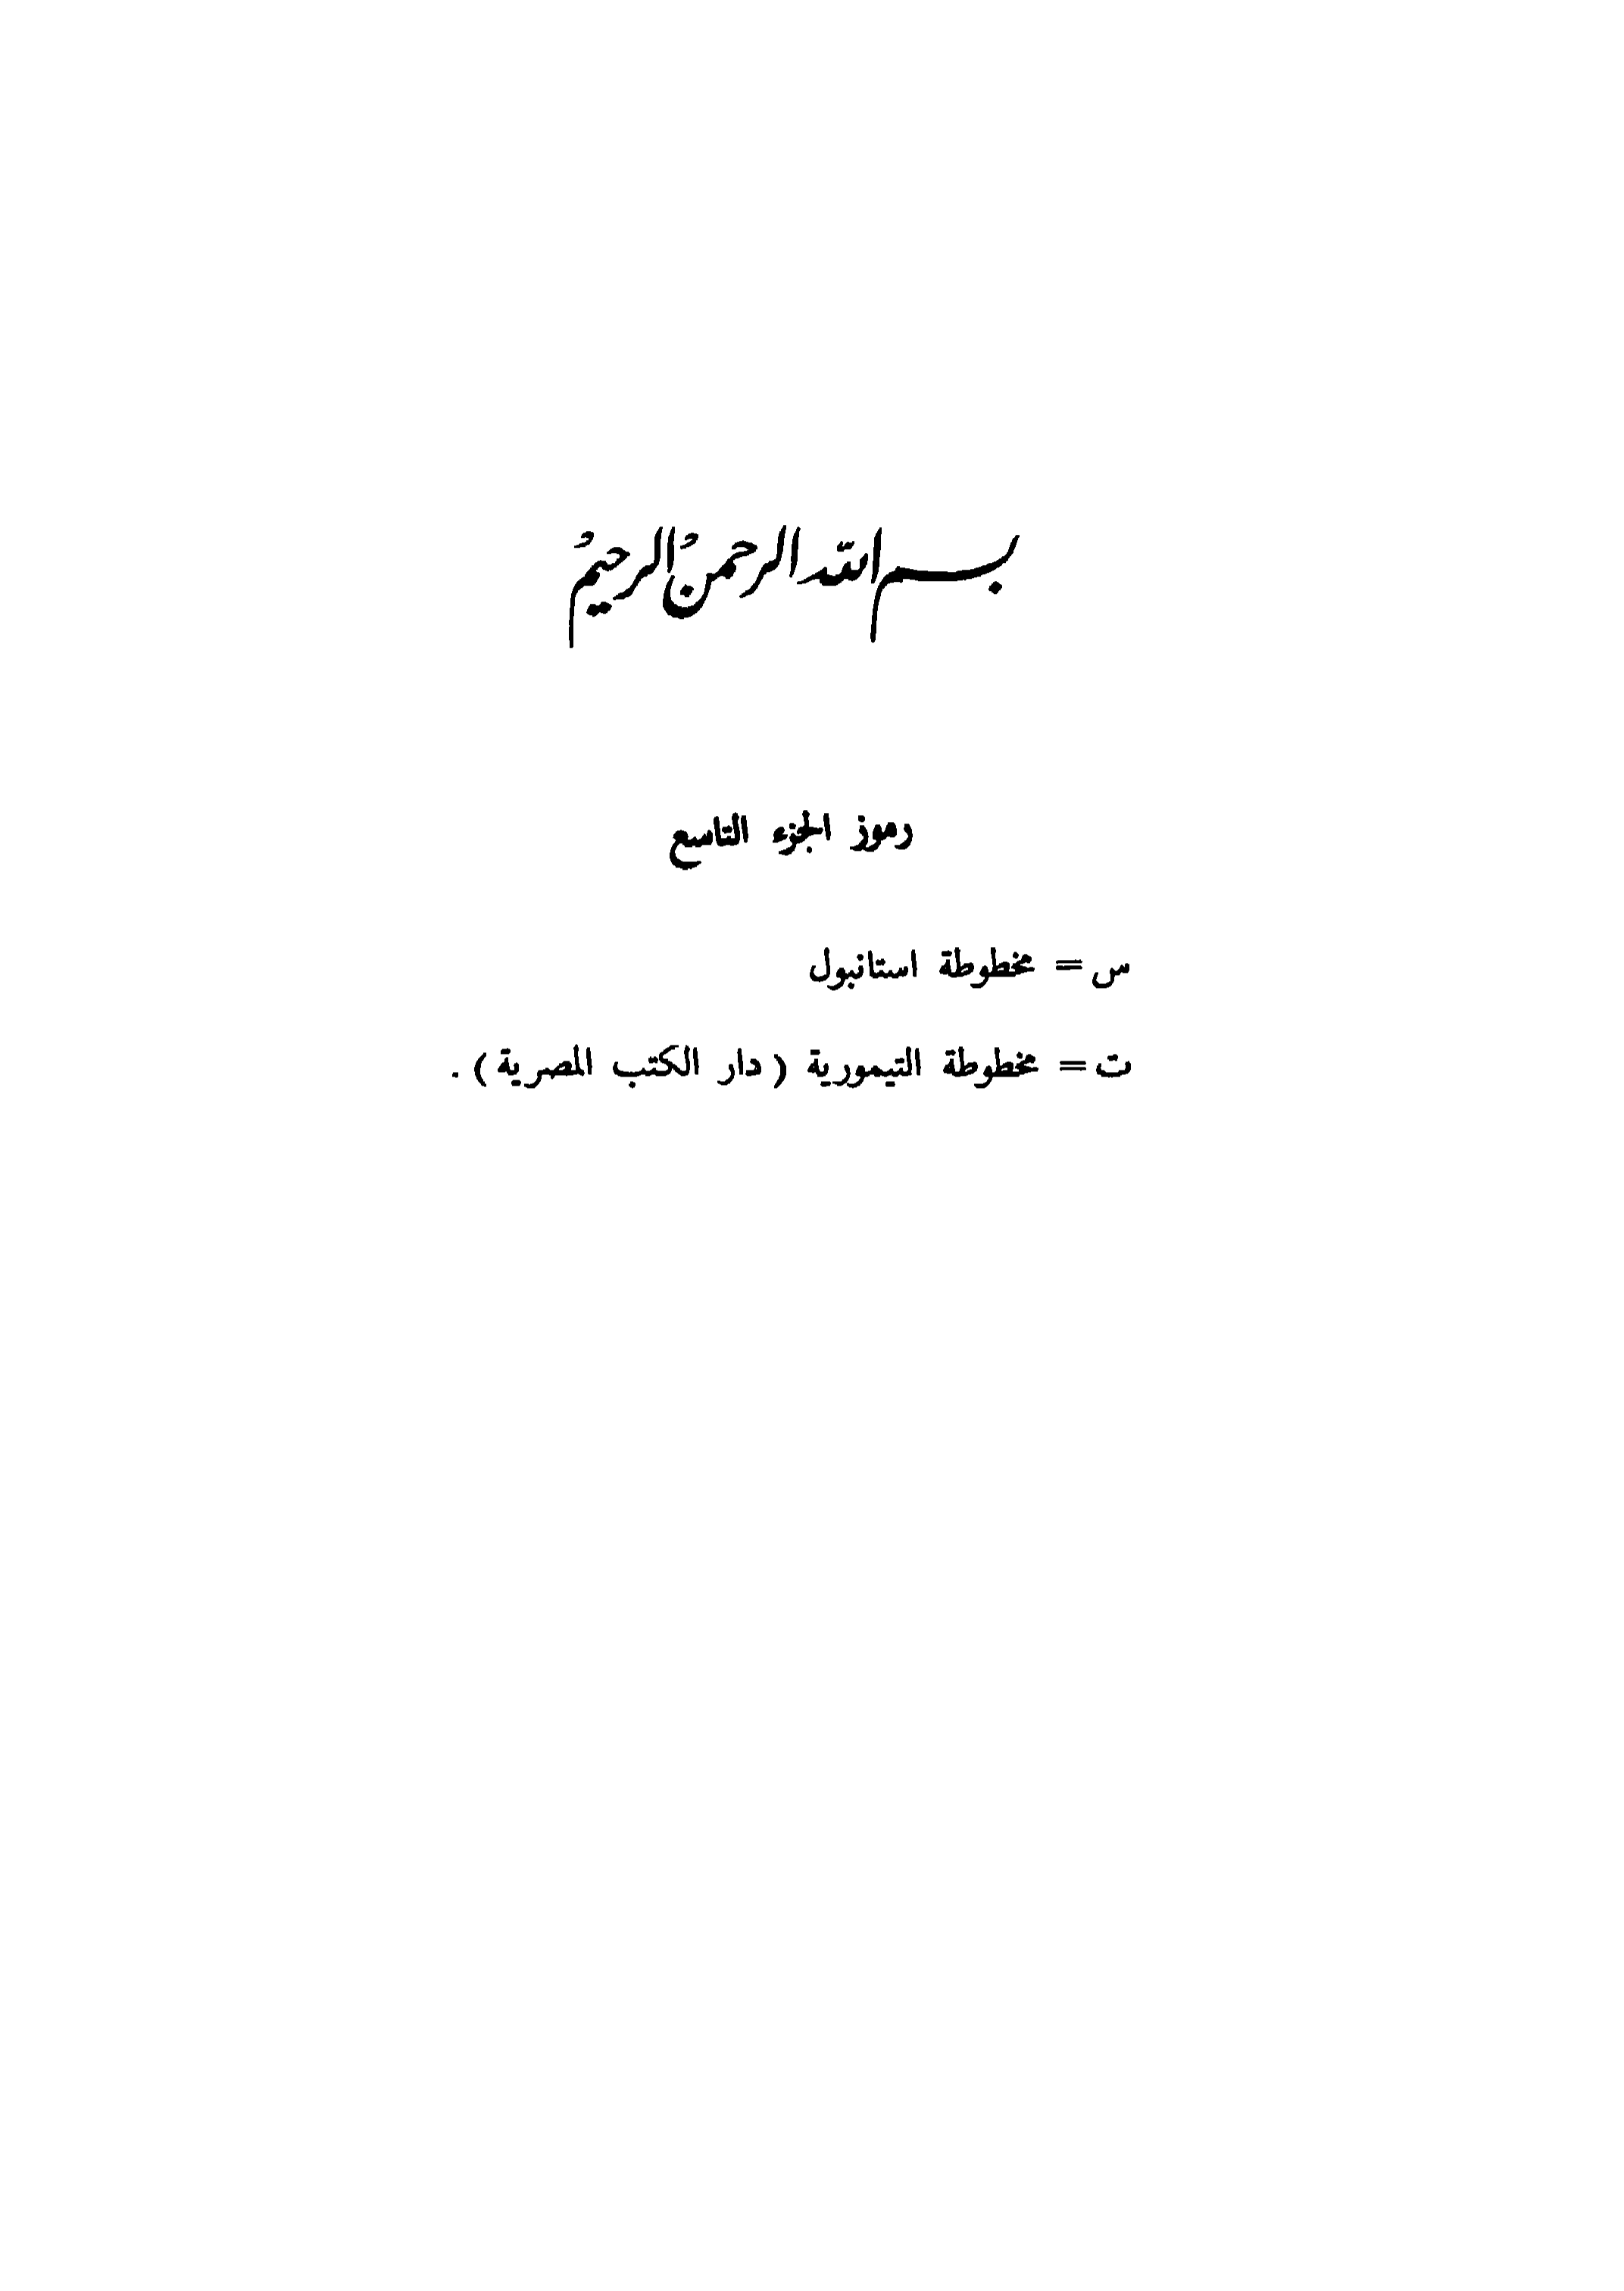 بسم الله الرحمن الرحيم
رموز الجزء التاسع
س = مخطوطة استانبول
ت = مخطوطة التيمورية ( دار الكتب المصرية ) .